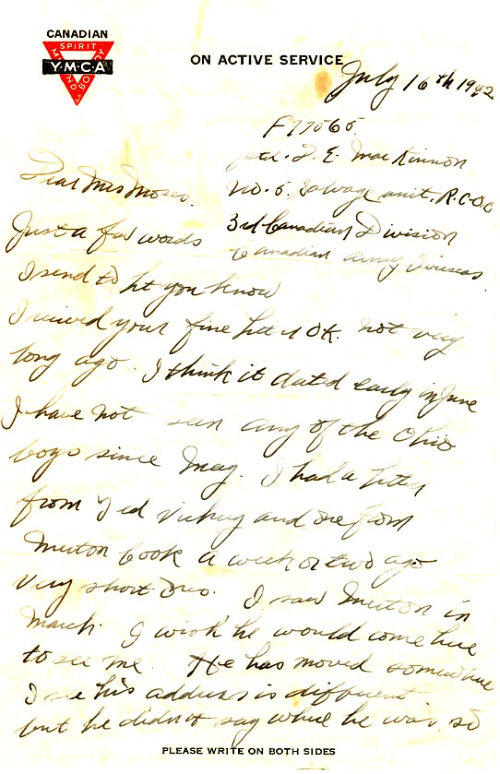 CANADIAN
SPIRIT
Y·M·C·A
MIND
BODY
ON ACTIVE SERVICE
July 16th 1942
F77565
D. E. MacKinnon
Dear Mrs Moses.
No. 5. Salvage unit. R.C.O.C
3rd Canadian Division
Canadian Army Overseas.
Just a few words
I send to let you know
I reeived your fine letter OK. not very
long ago. I think it dated early in June
I have not seen any of the Ohio
boys since May. I had a letter
from Ted Vickery and one from
Murton Cook a week or two ago
Very short ones. I saw Murton in
March. I wish he would come here
to see me. He has moved somewhere
I see his address is different
but he didn't say where he was. so
PLEASE WRITE ON BOTH SIDES